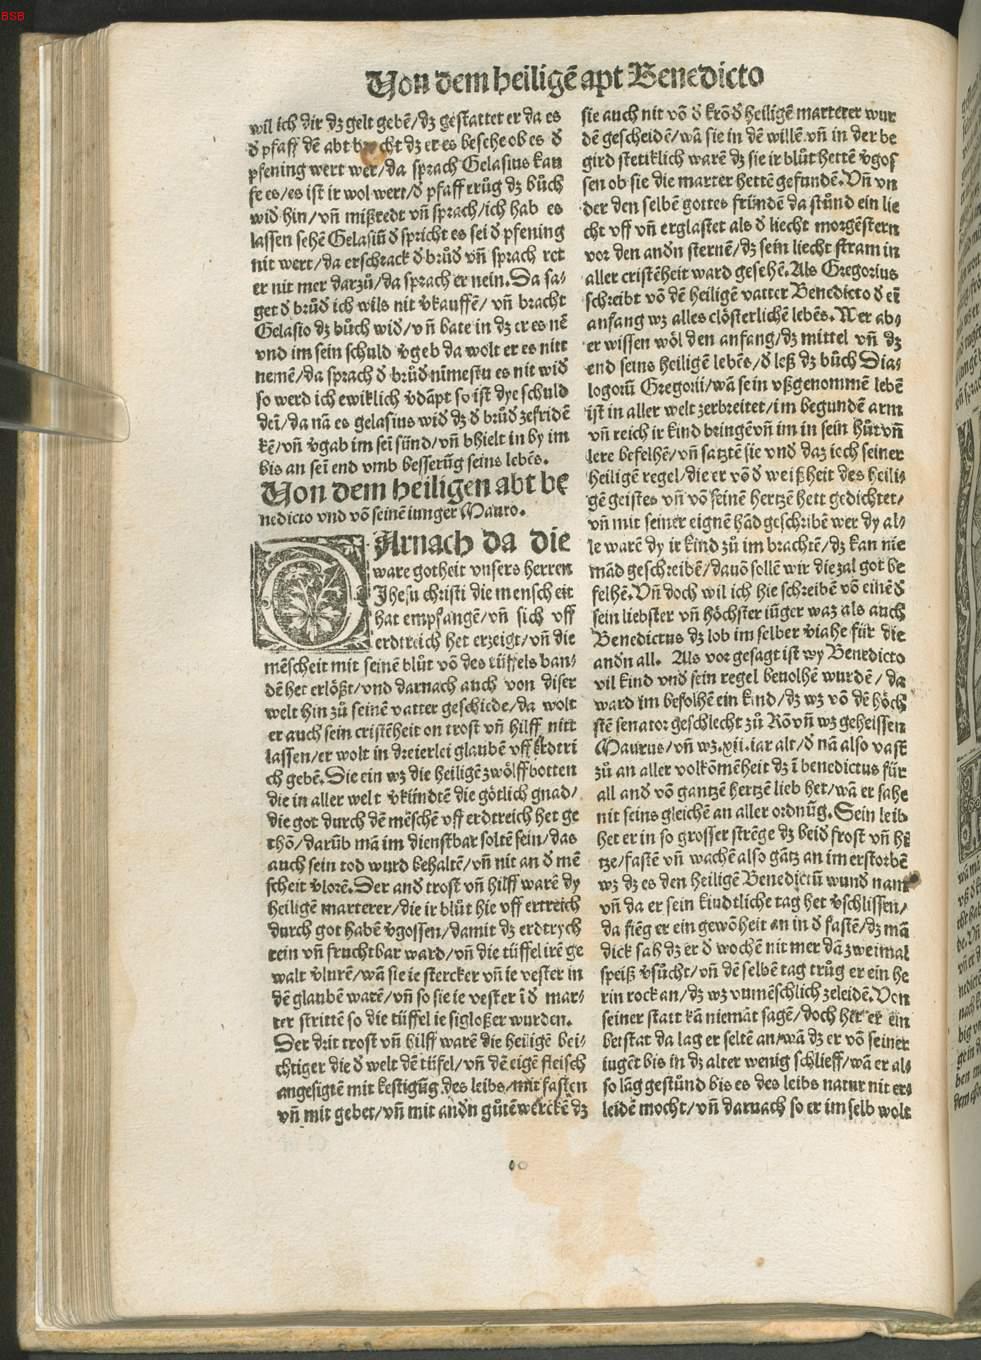 BSB
Von dem heiligē apt Benedicto
wil ich dir dz gelt gebē/dz gestattet er da es
d̄ pfaff dē abt bracht dz er es besehe ob es d̄
pfening wert wer/da sprach Gelasius kan
fe es/es ist ir wol wert/d̄ pfaff trůg dz bůch
wid̄ hin/vñ mißredt vñ sprach/ich hab es
lassen sehē Gelasiū d̄ spricht es sei d̄ pfening
nit wert/da erschrack d̄ brůd̄ vñ sprach ret
er nit mer darzů/da sprach er nein. Da sa⸗
get d̄ brůd̄ ich wils nit v̄kauffē/ vñ bracht
Gelasio dz bůch wid̄/vñ bate in dz er es nē
vnd im sein schuld v̄geb da wolt er es nitt
nemē/da sprach d̄ brůd̄ nīmestu es nit wid̄
so werd ich ewiklich v̄dāpt so ist dye schuld
dein/da nā es gelasius wid̄ dz d̄ brůd̄ zefridē
kē/vñ v̄gab im sei sünd/vñ bhielt in by im
bis an sei end vmb besserūg seins lebēs.
Von dem heiligen abt be
nedicto vnd vō seinē iunger Mauro.
DArnach da die
ware gotheit vnsers herren
Jhesu christi die menscheit
hat empfangē/vñ sich vff
erdtreich het erzeigt/vñ die
mēscheit mit seinē blůt vō des tüffels ban⸗
dē het erlößt/vnd darnach auch von diser
welt hin zů seinē vatter geschiede/da wolt
er auch sein cristēheit on trost vñ hilff nitt
lassen/er wolt in dreierlei glaubē vff erdtri
ch gebē. Die ein wz die heiligē zwölffbotten
die in aller welt v̄kündtē die götlich gnad/
die got durch dē mēschē vff erdtreich het ge
thō/darūb mā im dienstbar soltē sein/das
auch sein tod wurd behaltē/vñ nit an d̄ mē
scheit v̄lorē. Der and̄ trost vñ hilff warē dy
heiligē marterer/die ir blůt hie vff ertreich
durch got habē v̄gossen/damit dz erdtrych
rein vñ fruchtbar ward/vñ die tüffel irē ge
walt v̄lurē/wā sie ie stercker vñ ie vester in
dē glaubē warē/vñ so sie ie vester ī d̄ mar⸗
ter strittē so die tüffel ie sigloßer wurden.
Der drit trost vñ hilff warē die heiligē bei⸗
chtiger die d̄ welt dē tüfel/vñ dē eigē fleisch
angesigtē mit kestigūg des leibs/mit fasten
vñ mit gebet/vñ mit andn gůtē werckē dz
sie auch nit vō d̄ krō d̄ heiligē marterer wur
dē gescheidē/wā sie in dē willē vñ in der be
gird stetiklich warē dz sie ir blůt hettē v̄gos
sen ob sie die marter hettē gefundē. Vñ vn
der den selbē gottes fründē da stůnd ein lie
cht vff vñ erglastet als d̄ liecht morgēstern
vor den andn sternē/dz sein liecht stram in
aller cristēheit ward gesehē. Als Gregorius
schreibt vō dē heiligē vatter Benedicto d̄ ei
anfang wz alles clösterlichē lebēs. Wer ab⸗
er wissen wöl den anfang/dz mittel vñ dz
end seins heiligē lebēs/d̄ leß dz bůch Dia⸗
logorū Gregorii/wā sein vßgenommē lebē
ist in aller welt zerbreitet/im begundē arm
vñ reich ir kind bringē vñ im in sein hůt vñ
lere befelhē/vñ satztē sie vnd daz iech seiner
heiligē regel/die er vō d̄ weißheit des heili⸗
gē geistes vñ vō seinē hertzē hett gedichtet/
vñ mit seiner eignē hād geschribē wer dy al⸗
le warē dy ir kind zů im brachtē/dz kan nie
mād geschreibē/dauō sollē wir die zal got be
felhē. Vñ doch wil ich hie schreibē vō einē d̄
sein liebster vñ höchster iūger waz als auch
Benedictus dz lob im selber v̄iahe für die
andn all. Als vor gesagt ist wy Benedicto
vil kind vnd sein regel beuolhē wurdē/ da
ward im befolhē ein kind/dz wz vō dē höch
stē senator geschlecht zů Rō vñ wz geheissen
Maurus/vñ wz .xii. iar alt/d̄ nā also vast
zů an aller volkōmēheit dz ī benedictus für
all and vō gantzē hertzē lieb het/wā er sahe
nit seins gleichē an aller ordnūg. Sein leib
het er in so grosser strēge dz beid̄ frost vñ hi
tze/fastē vñ wachē also gātz an im erstorbē
wz dz es den heiligē Benedictū wund nam
vñ da er sein kindtliche tag het v̄schlissen/
da fieg er ein gewōheit an in d̄ fastē/dz mā
dick sah dz er d̄ wochē nit mer dā zweimal
speiß v̄sůcht/vñ dē selbē tag trůg er ein he
rin rock an/dz wz vnmēschlich zeleidē. Von
seiner statt kā niemāt sagē/doch het er ein
betstat da lag er seltē an/wā dz er vō seiner
iugēt bis in dz alter wenig schlieff/wā er al⸗
so lāg gestůnd bis es des leibs natur nit er⸗
leidē mocht/vñ darnach so er im selb wolt